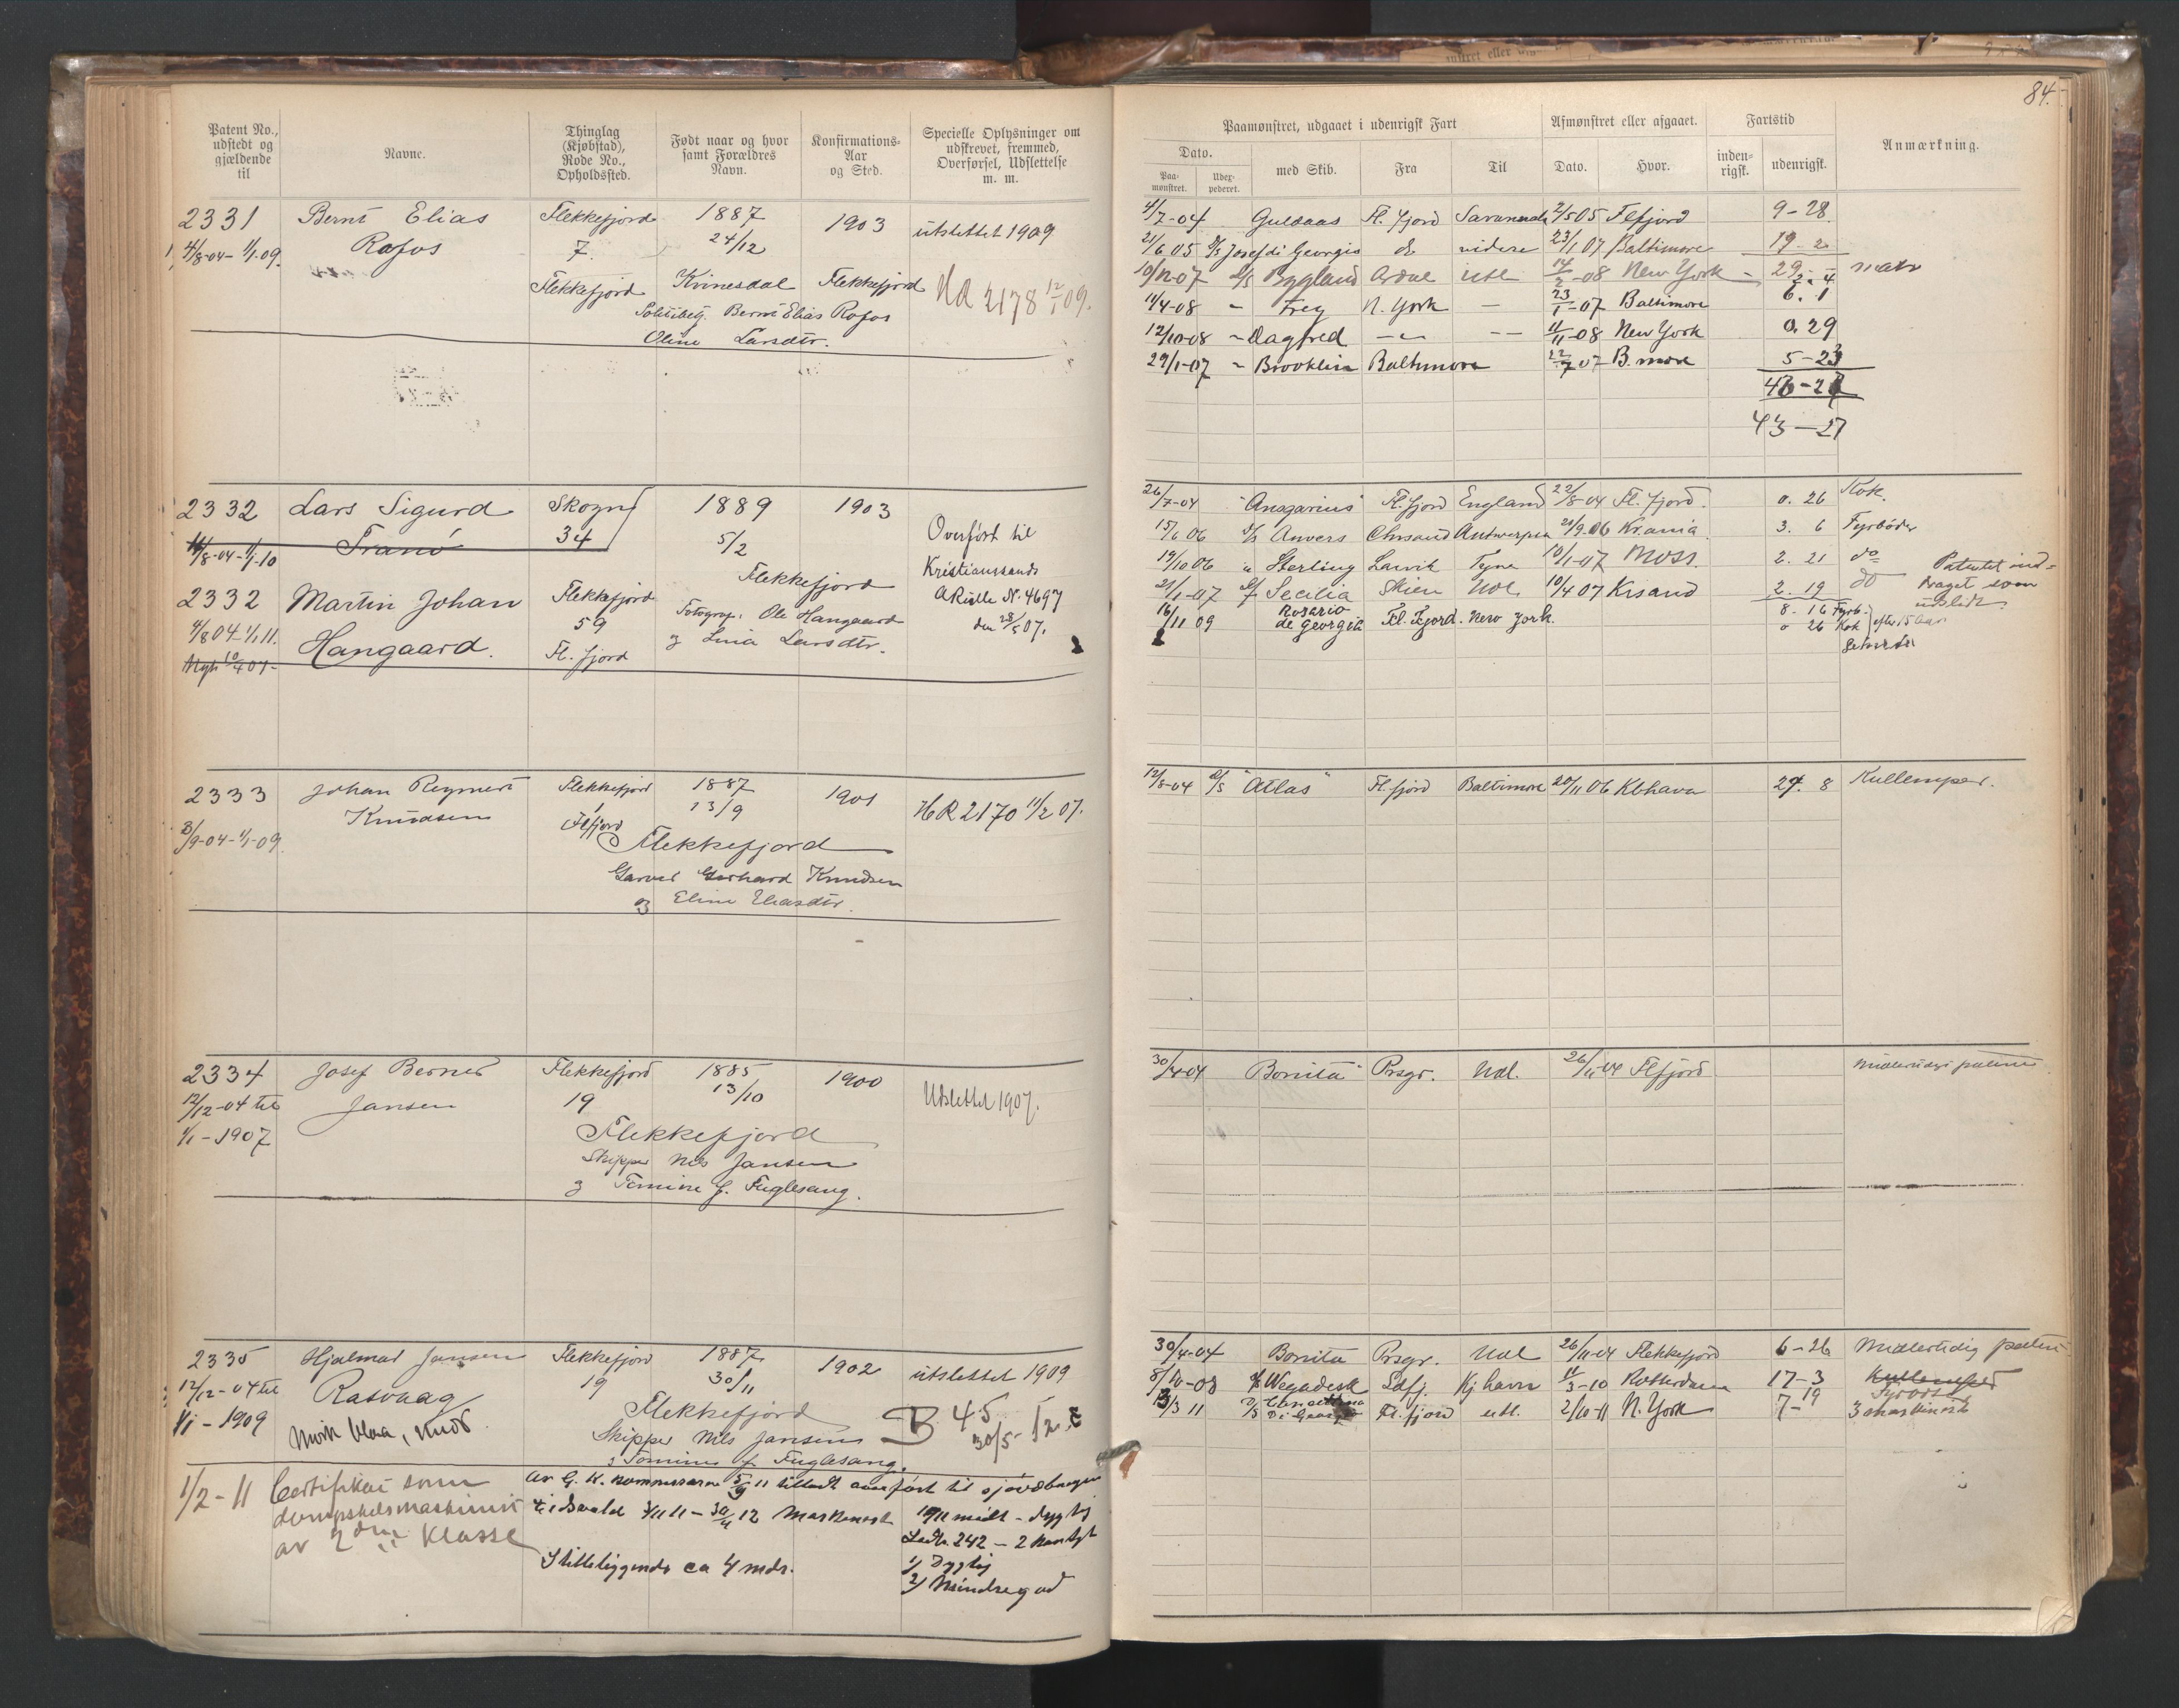 84.
Patent No., udstedt og gjældende til
Navne.
Thinglag (Kjøbstad), Rode No., Opholdssted.
Født naar og hvor samt Forældres Navn.
Konfirmations-Aar og Sted.
Specielle Oplysninger om udskrevet, fremmed, Overførsel, Udslettelse m. m.
Paamønstret, udgaaet i udenrigsk Fart
Afmønstret eller afgaaet.
Fartstid
Anmærkning.
Dato.
med Skib.
Fra
Til
Dato.
Hvor.
inden-rigsk.
udenrigsk.
Paa-mønstret.
Udex-pederet.
2331 Bernt Elias Flekkefjord 1887 1903 utslettet 1909
4/8-04-1/1-09. Rafos 7. 24/12
Flekkefjord Kvinesdal Flekkefjord
Bernt Elias Rafos
Oline Larsdtr.
4/7-04 Guldaas Fl. fjord 2/5 05 Flfjord 9-28
21/6 05 Josef di Georgio do videre 23/1 07 Baltimore 19-2
10/12-07 D/S Bygland utl 14/2-08 New York
11/4-08 " Frey N. York — 23/1-07 Baltimore 6. 1
12/10-08 " Dagfred 11/11-08 New York 0. 29
29/1-07 " Brooklin Baltimore 22/7 07 B.more 5-23
43-27
2332 Lars Sigurd Skogn 1889 1903
11/8-04-1/1-10 Tranö 34 5/2 Overført til
Flekkefjord Kristianssands
2332 Martin Johan Flekkefjord Fotograf. Ole Hangaard A Rulle N. 4697
4/8 04-1/1 11. Hangaard. 59 og Lina Larsdtr. den 28/5 07.
Fl. fjord
26/7-04 "Ansgarius" Fl. fjord England 22/8-04 Fl. fjord. 0. 26 Kok.
15/6 06 D/S Anvers Chrsand Antwerpen 21/9 06 Kr.ania 3. 6 Fyrbøder
19/10 06 " Sterling Larvik Tyne 10/1-07 Moss. 2. 21 do
21/1-07 Sf Secilia Skien Udl. 10/4 07 Krsand 2. 19 do
Patentet ind-
draget som
udslidt
16/11 09 Rosario de Georgio Fl. Fjord. New York. 8. 16 Fyrb.
0 26 Kok efter 15 Aar
2333 Johan Reymert Flekkefjord 1887 1901
3/9-04-1/1-09. Knudsen 1 13/9 HR 2170 11/2 07.
Flfjord Flekkefjord
Garver Gerhard Knudsen
og Eline Eliasdtr.
12/8-04 D/S "Atlas" Fl. fjord Baltimore 20/11 06 Kbhavn 27. 8 Kullemper.
2334 Josef Berner Flekkefjord 1885 1900 Utslettet 1907.
12/12-04 til Jansen 19 13/10
1/1-1907 Flekkefjord
Skipper Nils Jansen
og Tomine J. Fuglesang.
30/4-04 Bonita Prsgr. Udl. 26/11-04 Flfjord Midlertidigt patent
2335 Hjalmar Jansen Flekkefjord 1887 1902 utslettet 1909
12/12-04 til Rasvaag 19 30/11
1/1-1909 Flekkefjord B 45
Skipper Nils Jansen
og Tomine J. Fuglesang.
30/4-04 Bonita Prsgr. Udl 26/11-04 Flekkefjord 6-26 Midlertidig patent
8/10-08 Sdfj. Kj havn 11/3-10 Rotterdam 17-3 Kullemper
13/3 11 Di Georgio Fl. fjord utl. 2/10-11 N. York 7-19 3 maskinist
1/2-11 Certifikat som
dampskibsmaskinist
av 2den Klasse
Maskinist
Stilleliggende ca 4 mdr.
1/ Dygtig
2/ Mindre god